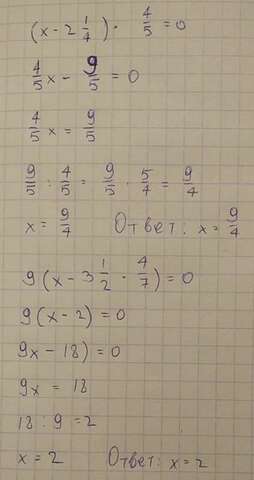 (x - 2 1/4) · 4/5 = 0
4/5 x - 9/5 = 0
4/5 x = 9/5
9/5 : 4/5 = 9/5 · 5/4 = 9/4
x = 9/4 Ответ: x = 9/4
9(x - 3 1/2 · 4/7) = 0
9(x - 2) = 0
9x - 18) = 0
9x = 18
18 : 9 = 2
x = 2 Ответ: x = 2